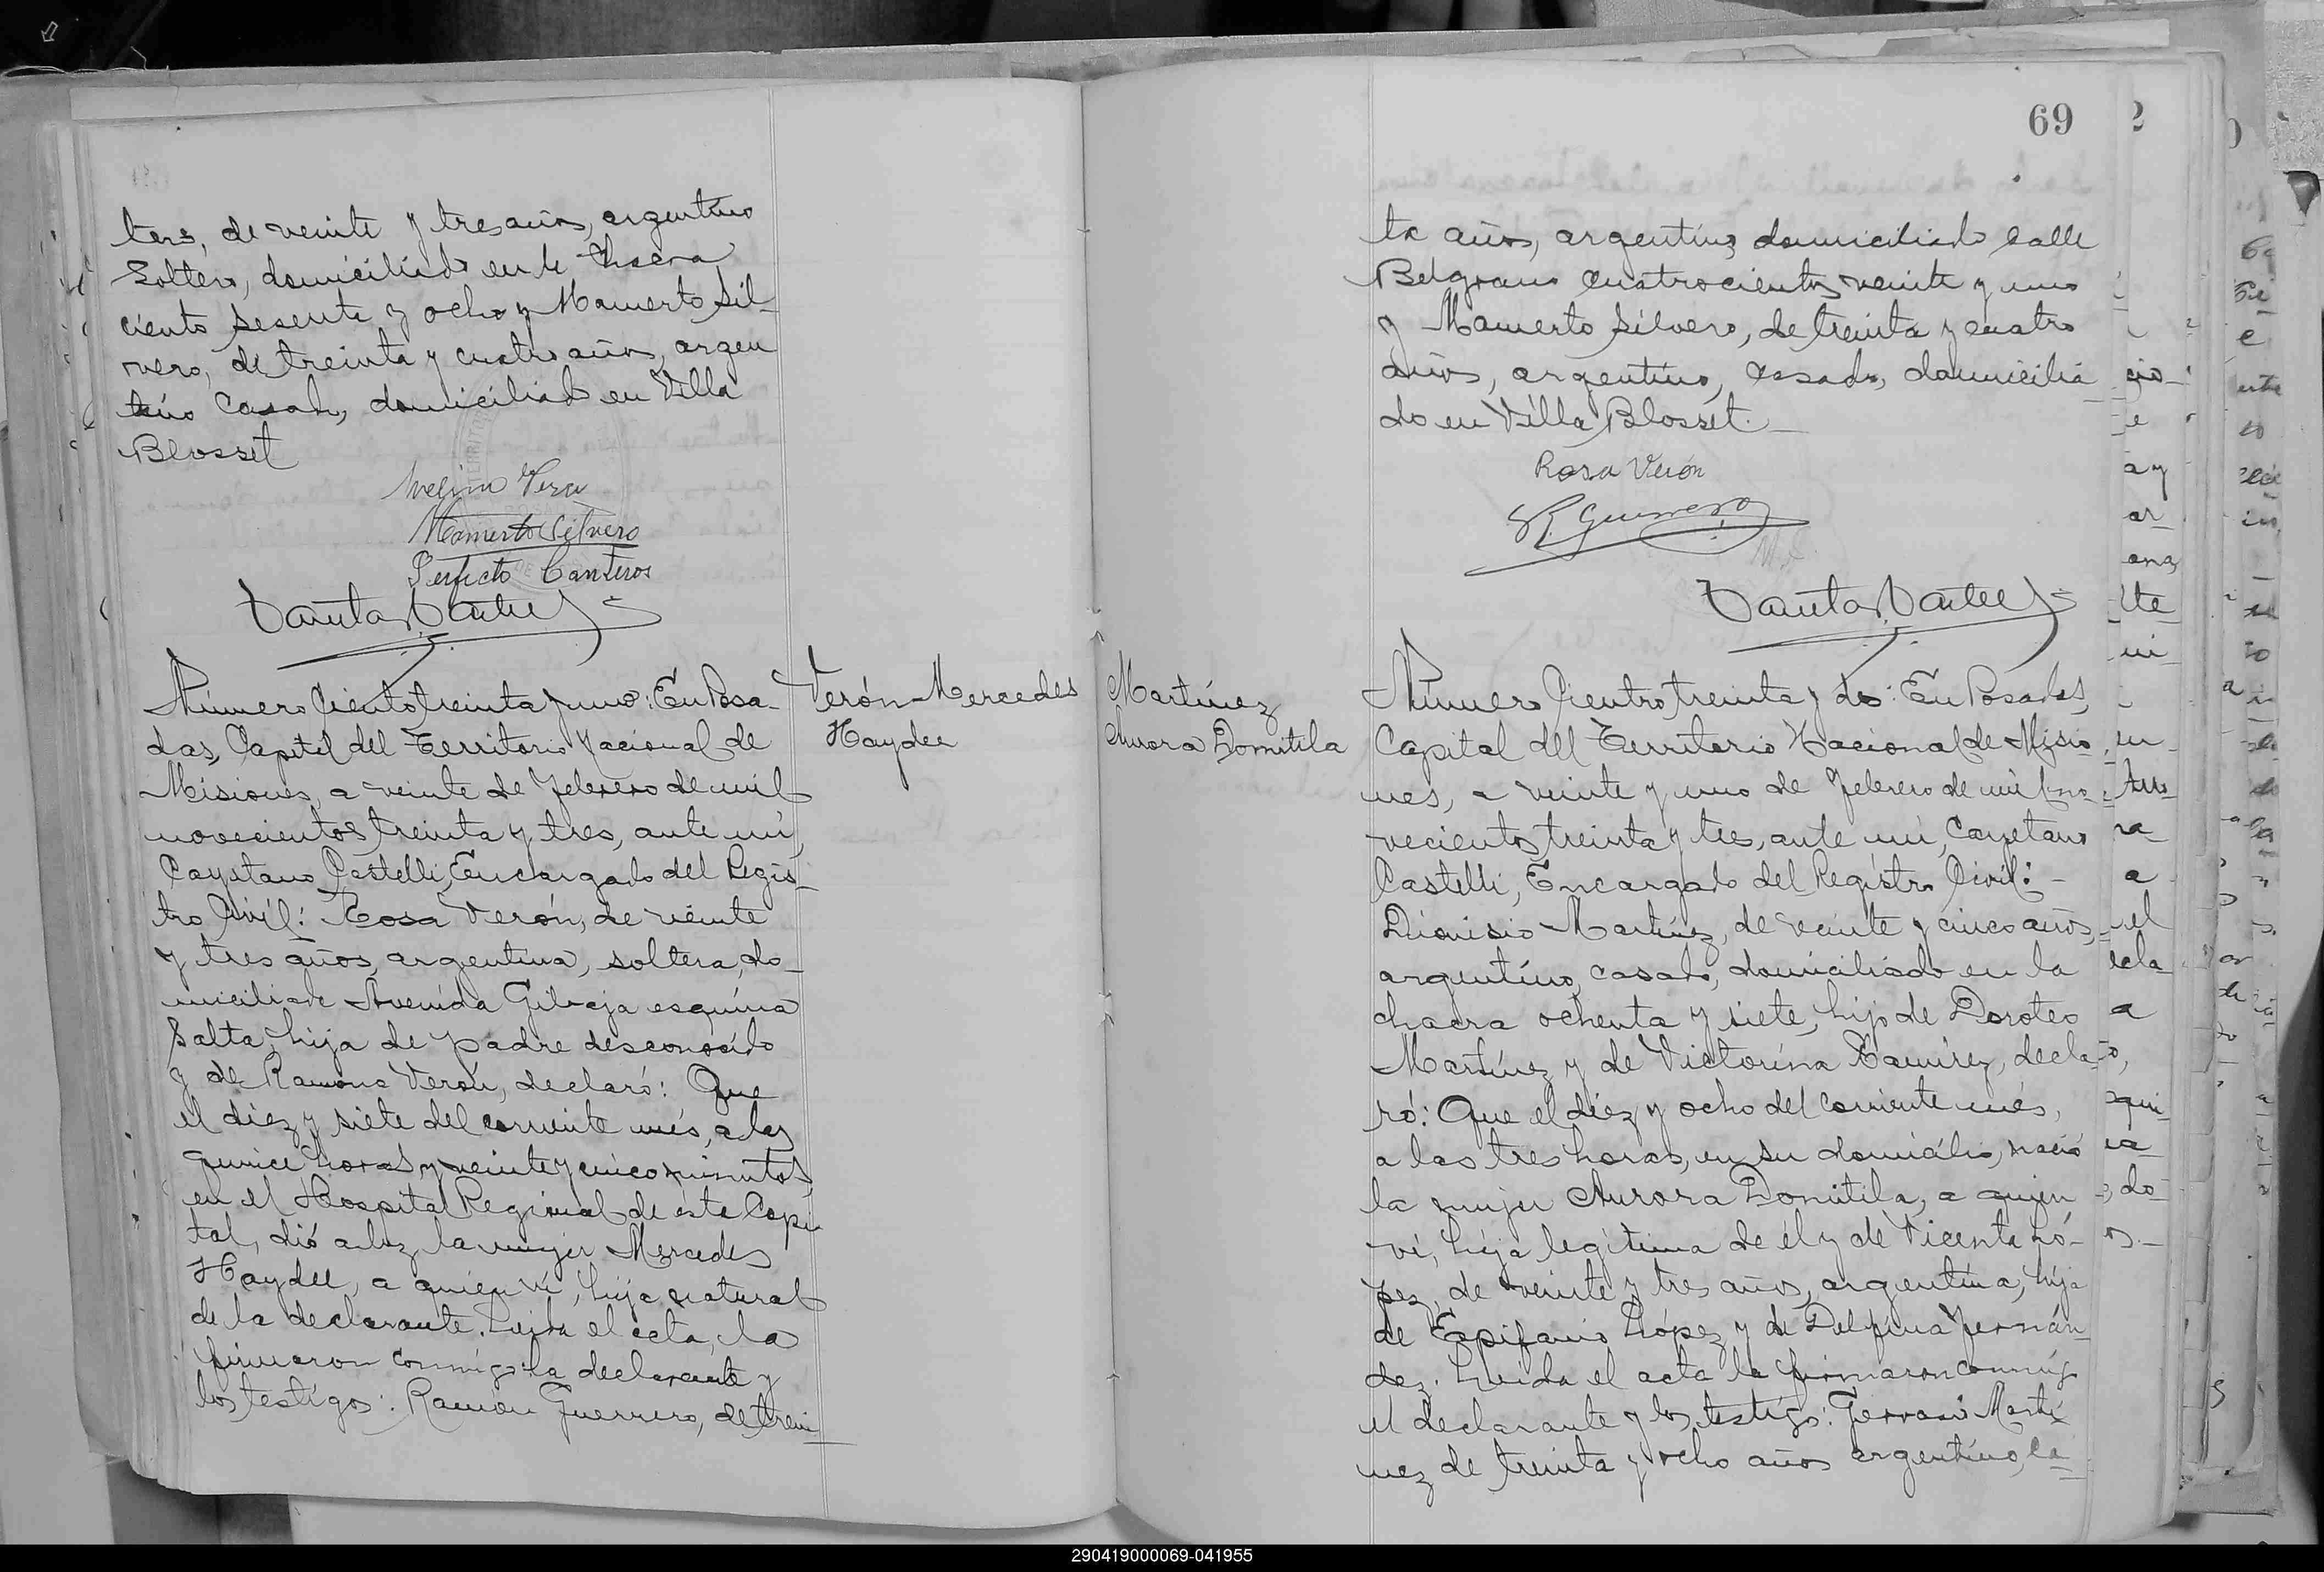 teros, de veinte y tres años, argentino
soltero, domiciliado en la Chacra
ciento sesenta y ocho y Mamerto Sil-
vero, de treinta y cuatro años, argen
tino casado, domiciliado en Villa
Blosset
Avelino Vera
Mamerto Silvero
Perfecto Canteros
Número Ciento treinta y uno: En Posa-
das, Capital del Territorio Nacional de
Misiones, a veinte de Febrero de mil
novecientos treinta y tres, ante mí,
Cayetano Castelli, Encargado del Regis-
tro Civil: Rosa Verón, de veinte
y tres años, argentina, soltera, do-
miciliada Avenida Gibaja esquina
Salta, hija de padre desconocido
y de Ramona Verón, declaró: Que
el diez y siete del corriente més, a las
quince horas y veinte y cinco minutos,
en el Hospital Regional de ésta Capi
tal, dió a luz la mujer Mercedes
Haydee, a quien ví, hija natural
de la declarante. Leida el acta, la
firmaron conmigo la declarante y
los testigos: Ramón Guerrero, de trein
Verón Mercedes
Haydee
69
ta años, argentino, domiciliado calle
Belgrano cuatrocientos veinte y uno
y Mamerto Silvero, de treinta y cuatro
años, argentino, casado, domicilia
do en Villa Blosset.
Rosa Verón
R. Guerrero
Martínez
Aurora Domitila
Número Ciento treinta y dos: En Posadas,
Capital del Territorio Nacional de Misio
nes, a veinte y uno de Febrero de mil no-
vecientos treinta y tres, ante mí, Cayetano
Castelli, Encargado del Registro Civil:
Dionisio Martínez, de veinte y cinco años,
argentino, casado, domiciliado en la
chacra ochenta y siete, hijo de Doroteo
Martínez y de Victorina Ramírez, decla-
ró: Que el diez y ocho del corriente més,
a las tres horas, en su domicilio, nació
la mujer Aurora Domitila, a quien
ví, hija legítima de él y de Vicenta Ló-
pez, de veinte y tres años, argentina, hija
de Epifanio López y de Delfina Fernán-
dez. Leida el acta la firmaron conmigo
el declarante y los testigos: Gervasio Martí
nez de treinta y ocho años argentino, ca-
290419000069-041955